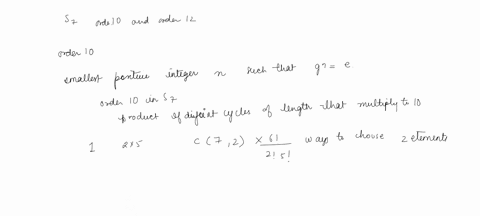 S7 orde10 and order 12
order 10
smallest positive integer n such that g^n = e.
order 10 in S7
product of disjoint cycles of length that multiply to 10
1 2x5 C(7,2) x 6!/2!5! ways to choose 2 elements